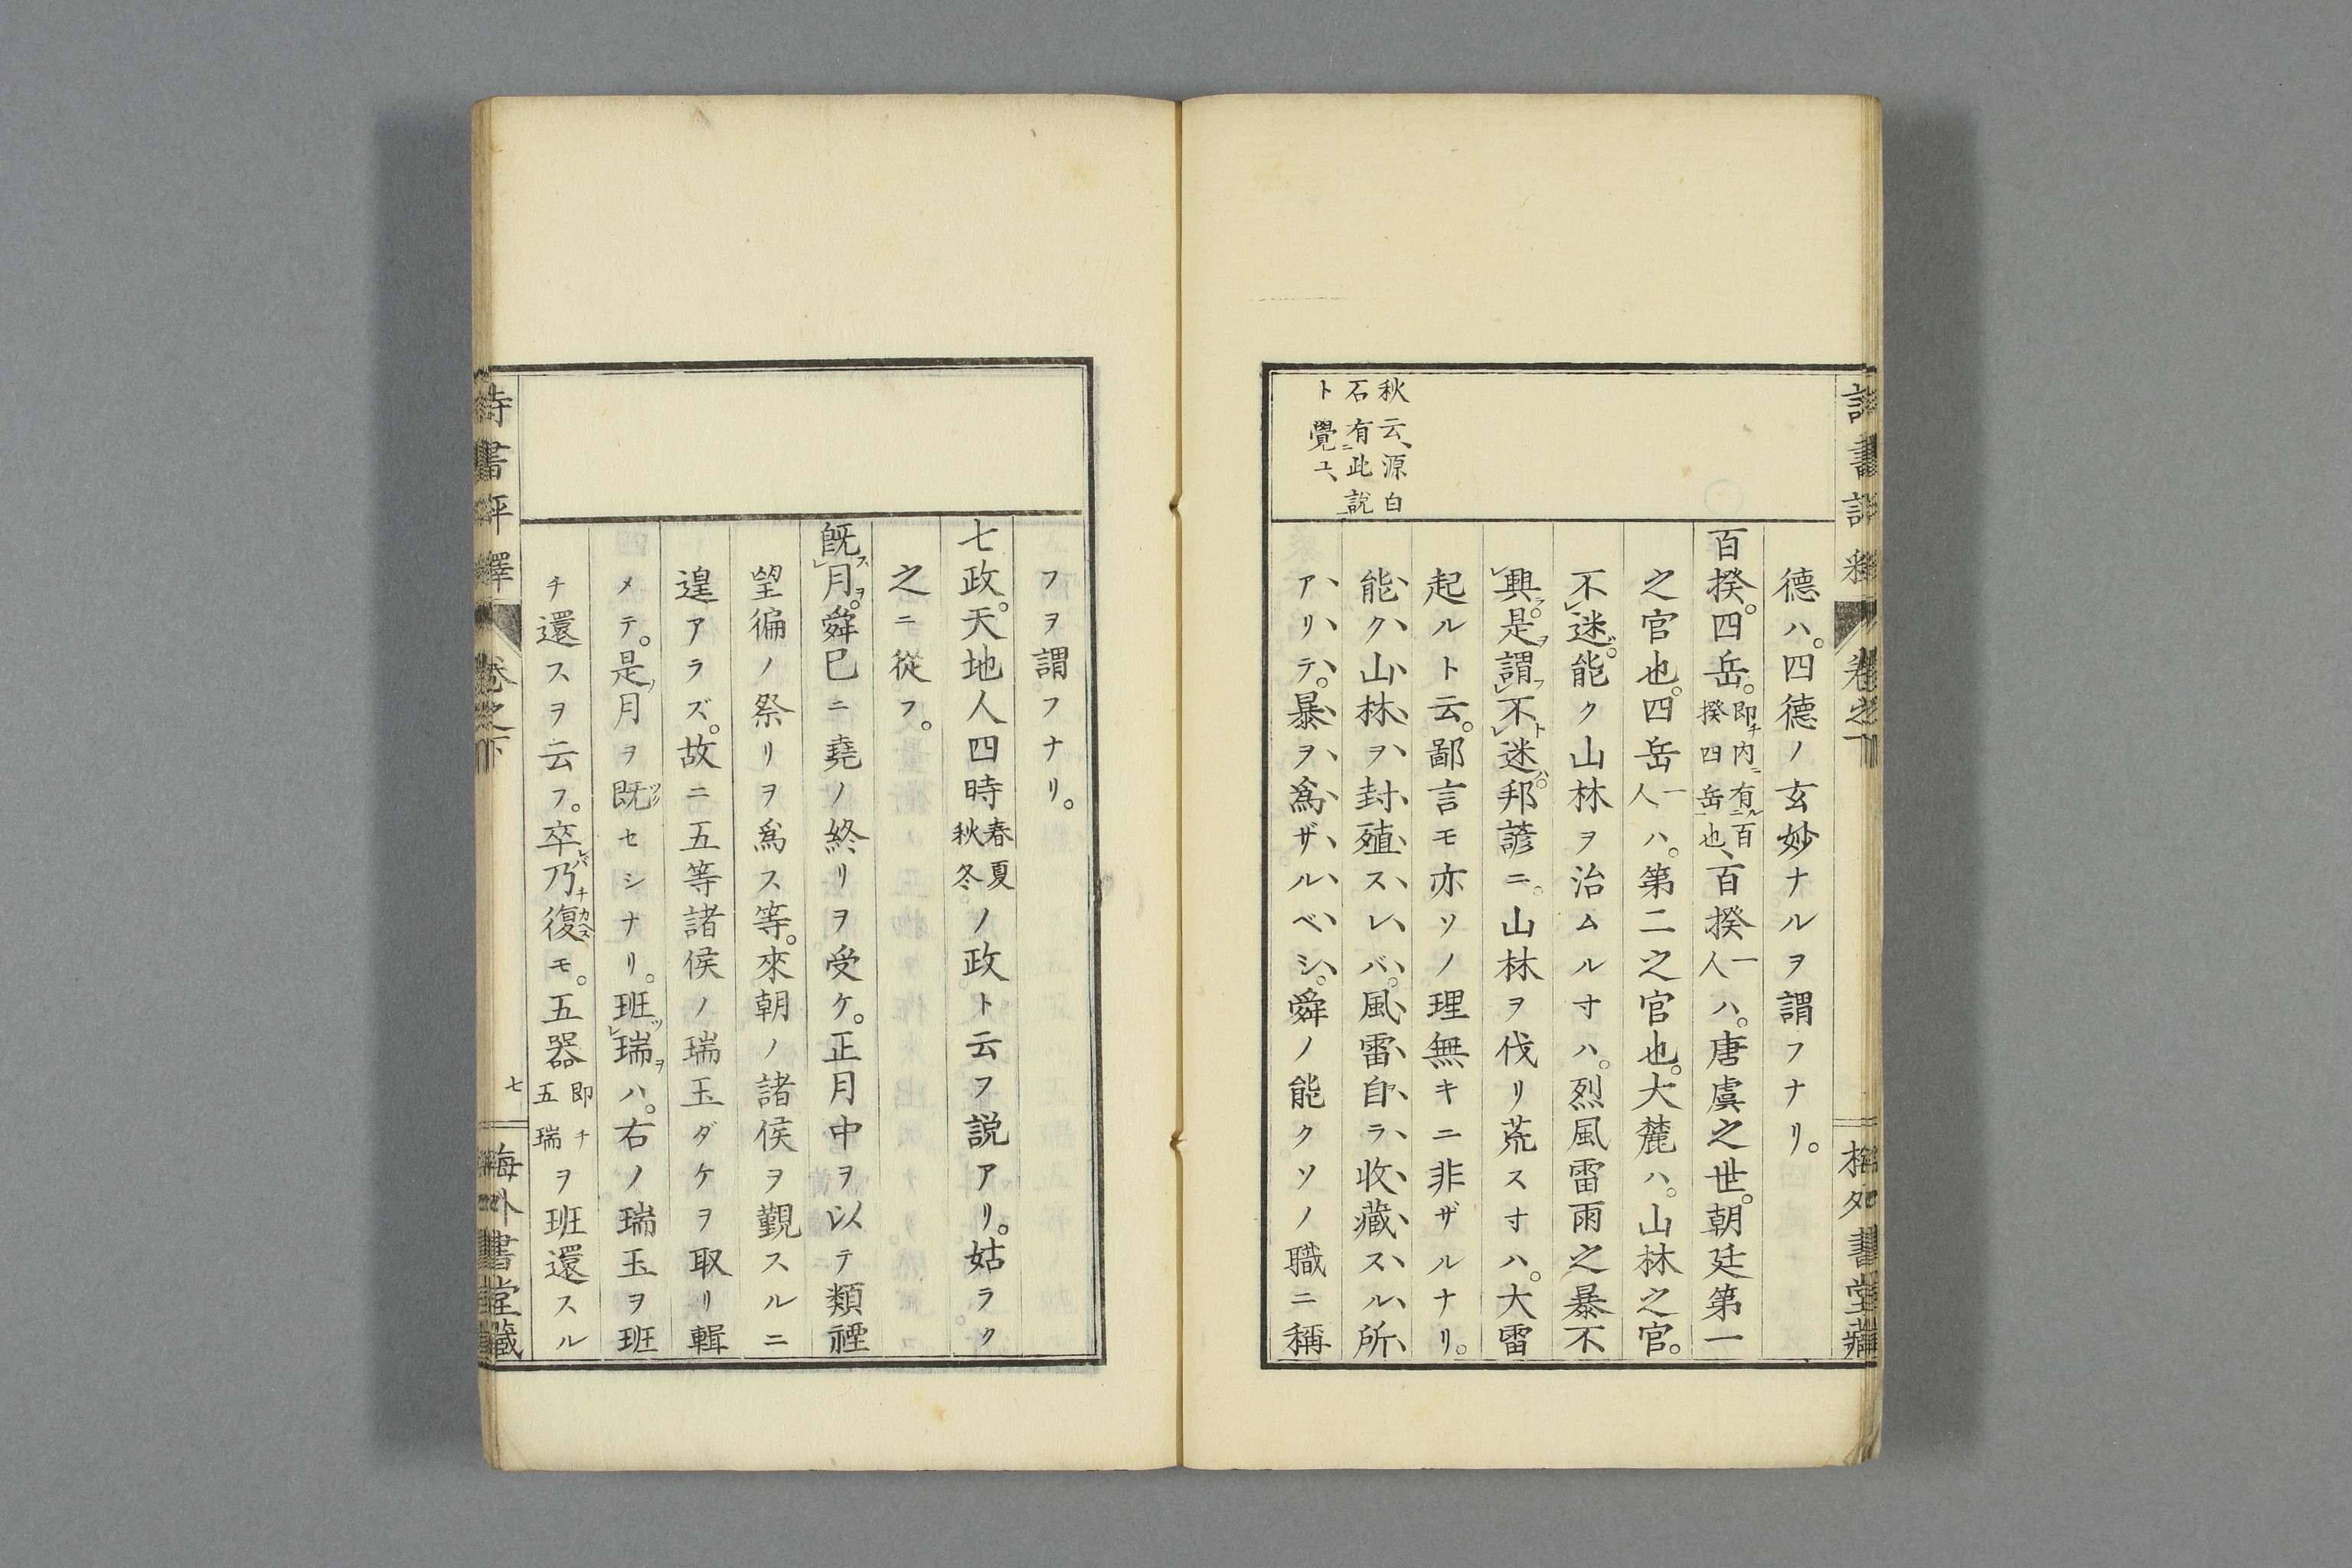 德ハ。四德ノ玄妙ナルヲ謂フナリ。
百揆。四岳。即チ內ニ有ル二百揆四岳一也、百揆一人ハ。唐虞之世。朝廷第一
之官也。四岳一人ハ。第二之官也。大麓ハ。山林之官。
不レ迷。能ク山林ヲ治ムル寸ハ。烈風雷雨之暴不
レ興。是ヲ謂フレ不トレ迷ハ。邦諺ニ。山林ヲ伐リ荒ス寸ハ。大雷
起ルト云。鄙言モ亦ソノ理無キニ非ザルナリ。
能ク山林ヲ封殖スレバ。風雷自ラ收藏スル所
アリテ。暴ヲ爲ザルベシ。舜ノ能クソノ職ニ稱
秋云、源白
石有二此說一
ト覺ユ、
フヲ謂フナリ。
七政。天地人四時春夏秋冬ノ政ト云フ説アリ。姑ラク
之ニ從フ。
旣スレ月ヲ。舜巳ニ堯ノ終リヲ受ケ。正月中ヲ以テ類禋
望徧ノ祭リヲ爲ス等。來朝ノ諸侯ヲ覲スルニ
遑アラズ。故ニ五等諸侯ノ瑞玉ダケヲ取リ輯
メテ。是ノ月ヲ既セシナリ。班ツレ瑞ヲハ。右ノ瑞玉ヲ班
チ還スヲ云フ。卒レバ乃チ復カヘスモ。五器即チ五瑞ヲ班還スル
詩書評釋
卷之下
七
梅外書堂藏